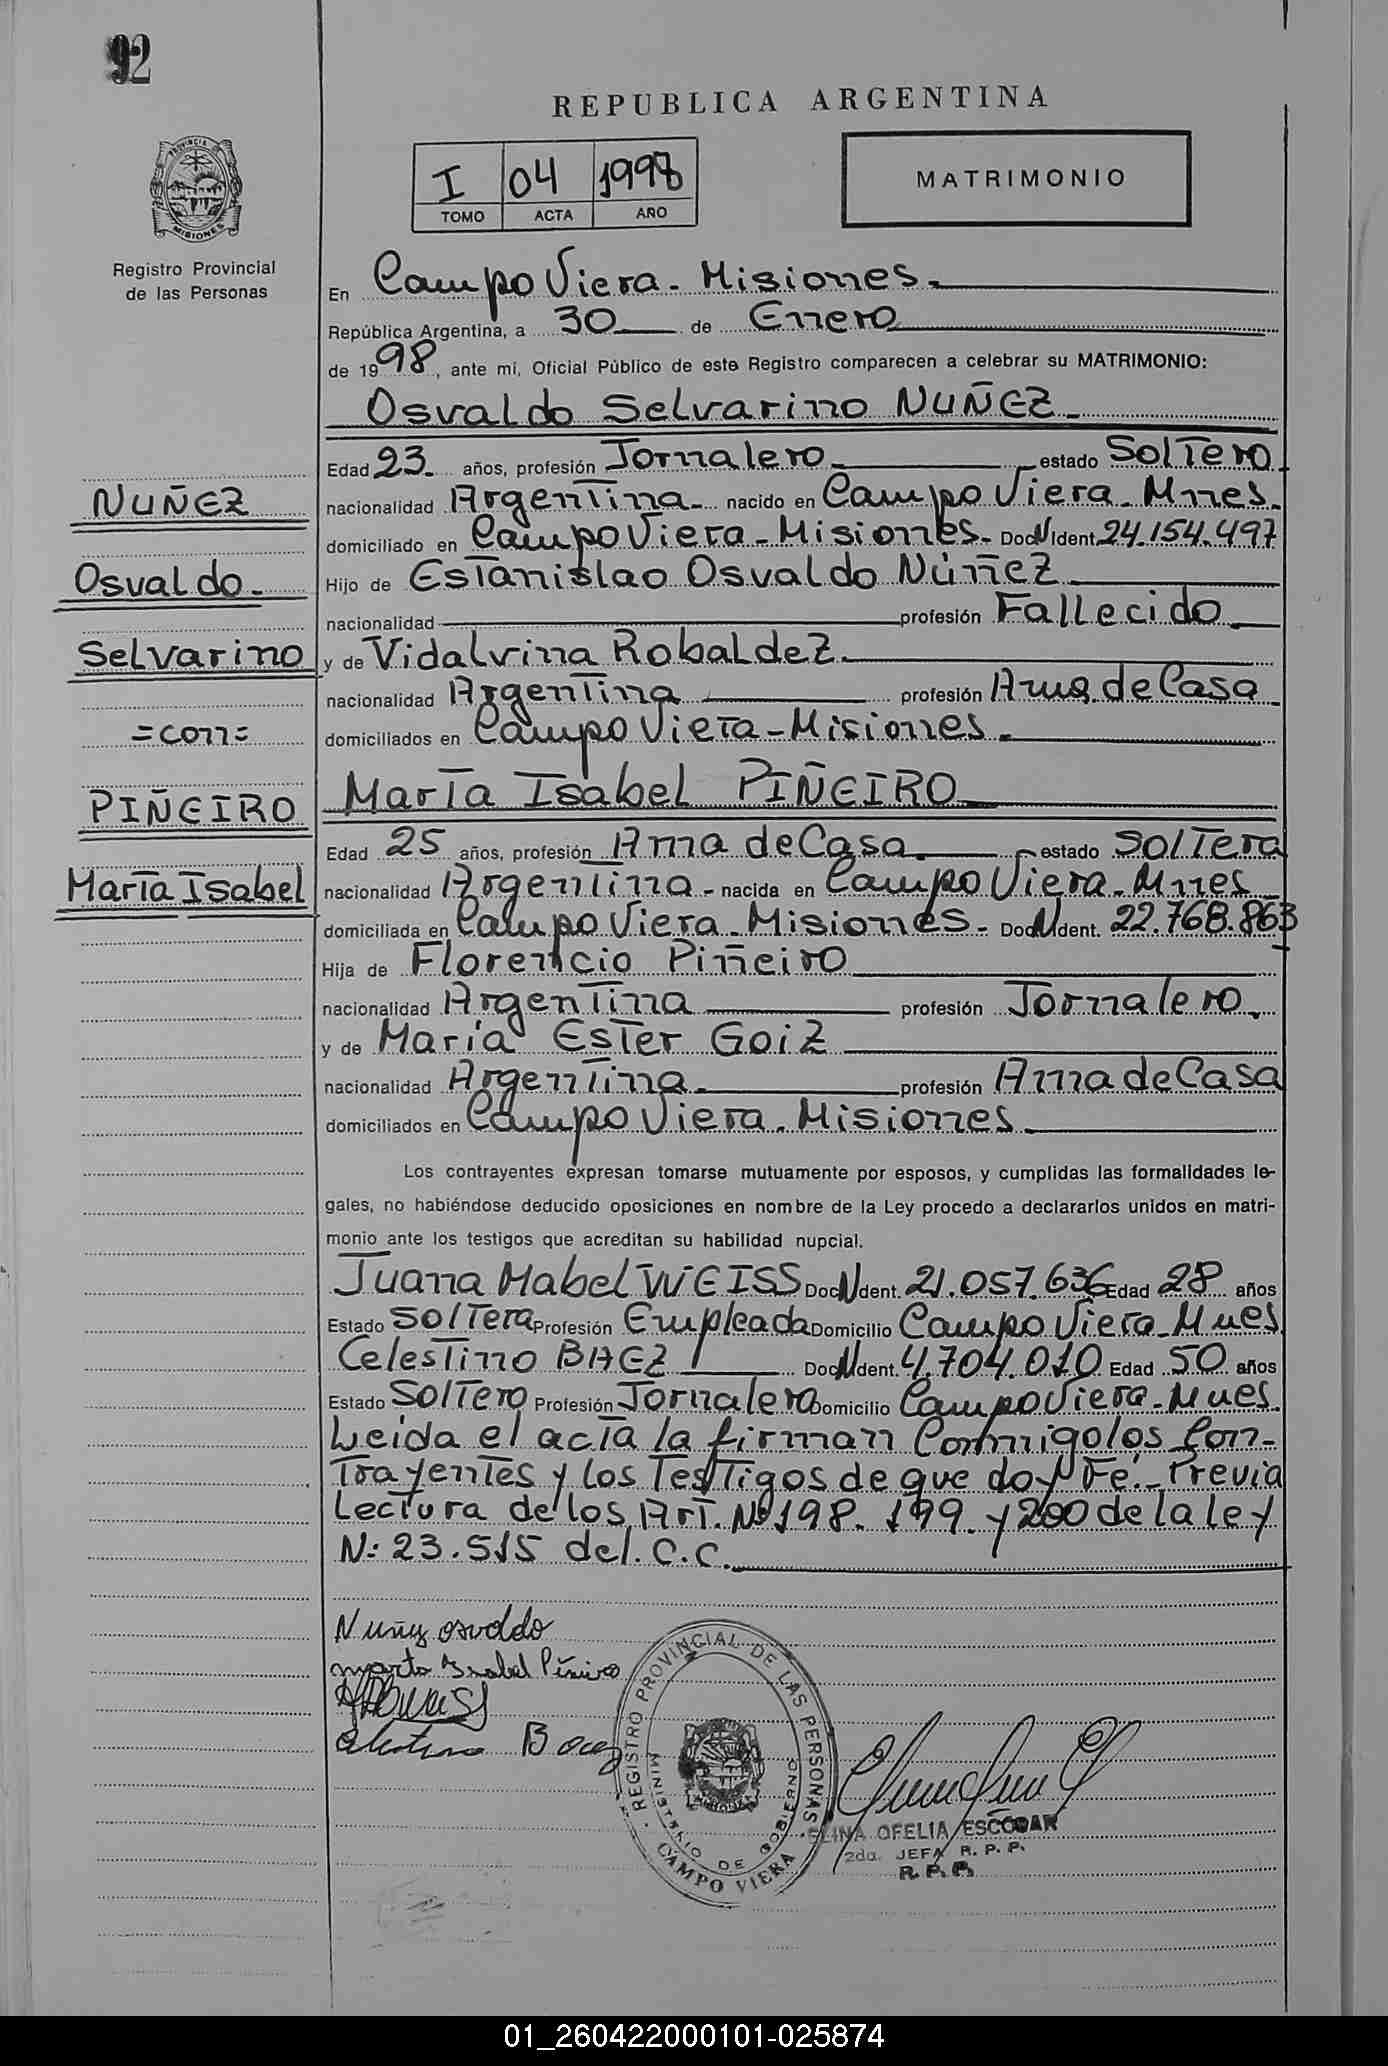 92
REPUBLICA ARGENTINA
I 04 1998
TOMO ACTA AÑO
MATRIMONIO
PROVINCIA DE
MISIONES
Registro Provincial
de las Personas
En Campo Viera - Misiones.
República Argentina, a 30 de Enero
de 1998, ante mí, Oficial Público de este Registro comparecen a celebrar su MATRIMONIO:
Osvaldo Selvarino NUÑEZ
Edad 23. años, profesión Jornalero estado Soltero
nacionalidad Argentina nacido en Campo Viera - Mnes.
domiciliado en Campo Viera - Misiones - Doc N Ident. 24.154.497
Hijo de Estanislao Osvaldo Núñez
nacionalidad profesión Fallecido
y de Vidalvina Robaldez.
nacionalidad Argentina profesión Ama de Casa
domiciliados en Campo Viera - Misiones.
María Isabel PIÑEIRO
Edad 25 años, profesión Ama de Casa estado Soltera
nacionalidad Argentina - nacida en Campo Viera - Mnes
domiciliada en Campo Viera - Misiones - Doc N Ident. 22.768.863
Hija de Florencio Piñeiro
nacionalidad Argentina profesión Jornalero.
y de María Ester Goiz
nacionalidad Argentina. profesión Ama de Casa
domiciliados en Campo Viera - Misiones
NUÑEZ
Osvaldo.
Selvarino
=con=
PIÑEIRO
María Isabel
Los contrayentes expresan tomarse mutuamente por esposos, y cumplidas las formalidades le-
gales, no habiéndose deducido oposiciones en nombre de la Ley procedo a declararlos unidos en matri-
monio ante los testigos que acreditan su habilidad nupcial.
Juana Mabel WEISS Doc N Ident. 21.057.636 Edad 28 años
Estado Soltera Profesión Empleada Domicilio Campo Viera - Mnes
Celestino BAEZ Doc N Ident. 4.704.010 Edad 50 años
Estado Soltero Profesión Jornalero Domicilio Campo Viera - Mnes.
Leída el acta la firman Conmigo los Con-
trayentes y los Testigos de que doy Fe. - Previa
Lectura de los Art. Nº 198. 199. y 200 de la ley
N: 23.515 del. C.C.
Nuñez osvaldo
maria Isabel Piñeiro
Celestino Baez
REGISTRO PROVINCIAL DE LAS PERSONAS
MINISTERIO DE GOBIERNO
MISIONES
CAMPO VIERA
ELINA OFELIA ESCOBAR
2da. JEFA R. P. P.
R. P. P.
01_260422000101-025874